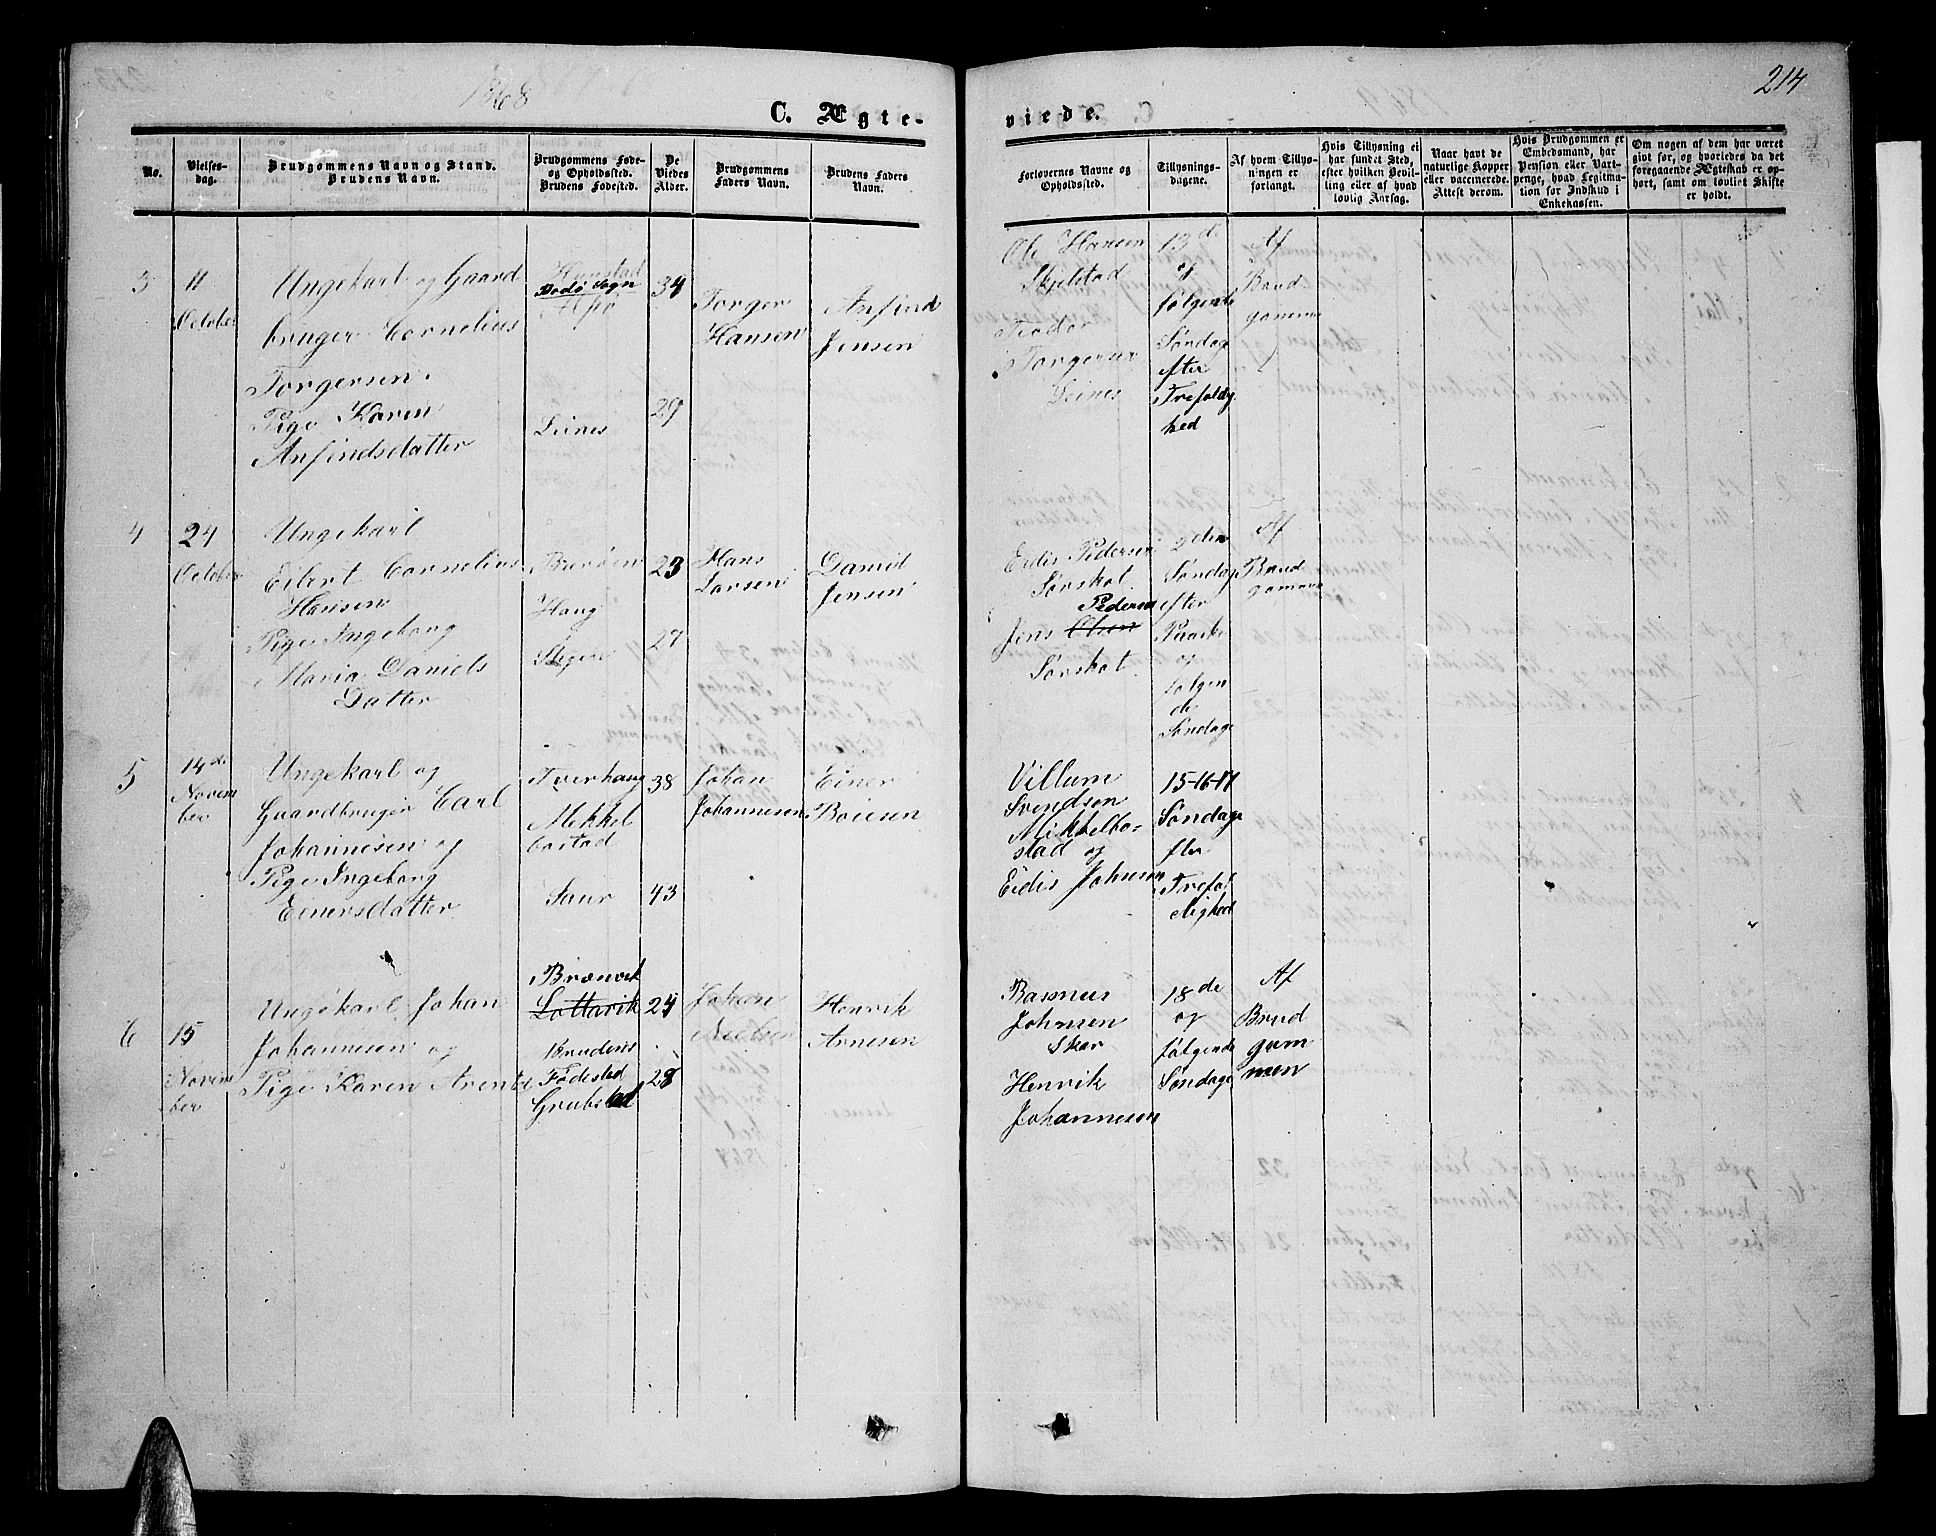 214
1868
C. Ægte-
viede.
No.
Vielses-
dag.
Brudgommens Navn og Stand.
Brudens Navn.
Brudgommens Føde-
og Opholdssted.
Brudens Fødested.
De
Viedes
Alder.
Brudgommens
Faders Navn.
Brudens Faders
Navn.
Forlovernes Navne og
Opholdssted.
Tillysnings-
dagene.
Af hvem Tillys-
ningen er
forlangt.
Hvis Tillysning ei
har fundet Sted,
efter hvilken Bevil-
ling eller af hvad
lovlig Aarsag.
Naar havt de
naturlige Kopper
eller vaccinerede.
Attest derom.
Hvis Brudgommen er
Embedsmand, har
Pension eller Vart-
penge, hvad Legitima-
tion for Indskud i
Enkekassen.
Om nogen af dem har været
givt før, og hvorledes da det
foregaaende Ægteskab er op-
hørt, samt om lovligt Skifte
er holdt.
3
11
October
Ungekarl og Gaard
bruger Cornelius
Torgersen.
Pige Karen
Anfindsdatter
Hunstad
Bodø Sogn
Leines
34
29
Torger
Hansen
Anfind
Jensen
Ole Hansen
Skjelstad
Teodor
Torgersen
Leines
13de
og
følgende
Søndage
efter
Trefoldig
hed
Af
Brud
gommen
4
24
October
Ungekarl
Eilert Cornelius
Hansen
Pige Ingeborg
Maria Daniels
Datter
Haug
Stegen
23
27
Hans
Larsen
Daniel
Jensen
Eidis Pedersen
Sørskot
Pedersen
Jens Olsen
Sørskot
2den
Søndag
efter
Paaske
og
følgen
de
Søndage
Af
Brud
gommen
5
14de
Novem
ber
Ungekarl og
Gaardbruger Carl
Johannesen og
Pige Ingeborg
Einersdatter
Tverhaug
Mekkel
bostad
Saur
38
43
Johan
Johannesen
Einer
Boiesen
Villum
Svendsen
Mikkelbo-
stad og
Eidis Johnsen
15-16-17
Søndage
fter
Trefol
dighed
6
15
Novem
ber
Ungekarl Johan
Johannesen og
Pige Karen Arenta
Brænvik
Lottavik
Brudens
Fødested
Grøbstad
24
28
Johan
Nielsen
Henrik
Arnesen
Rasmus
Johnsen
Skar
Henrik
Johannesen
18de
og
følgende
Søndage
Af
Brud
gom
men